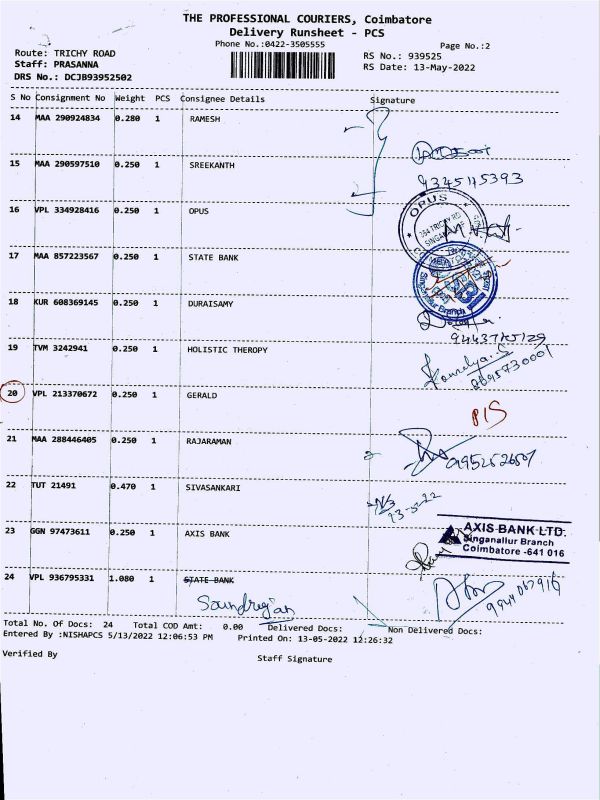 THE PROFESSIONAL COURIERS, Coimbatore
Delivery Runsheet - PCS
Phone No.:0422-3505555
Page No.:2
Route: TRICHY ROAD
RS No.: 939525
Staff: PRASANNA
RS Date: 13-May-2022
DRS No.: DCJB93952502
S No Consignment No Weight PCS Consignee Details Signature
14 MAA 290924834 0.280 1 RAMESH
15 MAA 290597510 0.250 1 SREEKANTH
16 VPL 334928416 0.250 1 OPUS
OPUS
364 TRICHY RD
17 MAA 857223567 0.250 1 STATE BANK
Singanallur Branch
18 KUR 608369145 0.250 1 DURAISAMY
19 TVM 3242941 0.250 1 HOLISTIC THEROPY
20 VPL 213370672 0.250 1 GERALD
21 MAA 288446405 0.250 1 RAJARAMAN
22 TUT 21491 0.470 1 SIVASANKARI
23 GGN 97473611 0.250 1 AXIS BANK
AXIS BANK LTD.
Singanallur Branch
Coimbatore -641 016
24 VPL 936795331 1.080 1 STATE BANK
Soundrajan
Total No. Of Docs: 24 Total COD Amt: 0.00 Delivered Docs: Non Delivered Docs:
Entered By :NISHAPCS 5/13/2022 12:06:53 PM Printed On: 13-05-2022 12:26:32
Verified By
Staff Signature